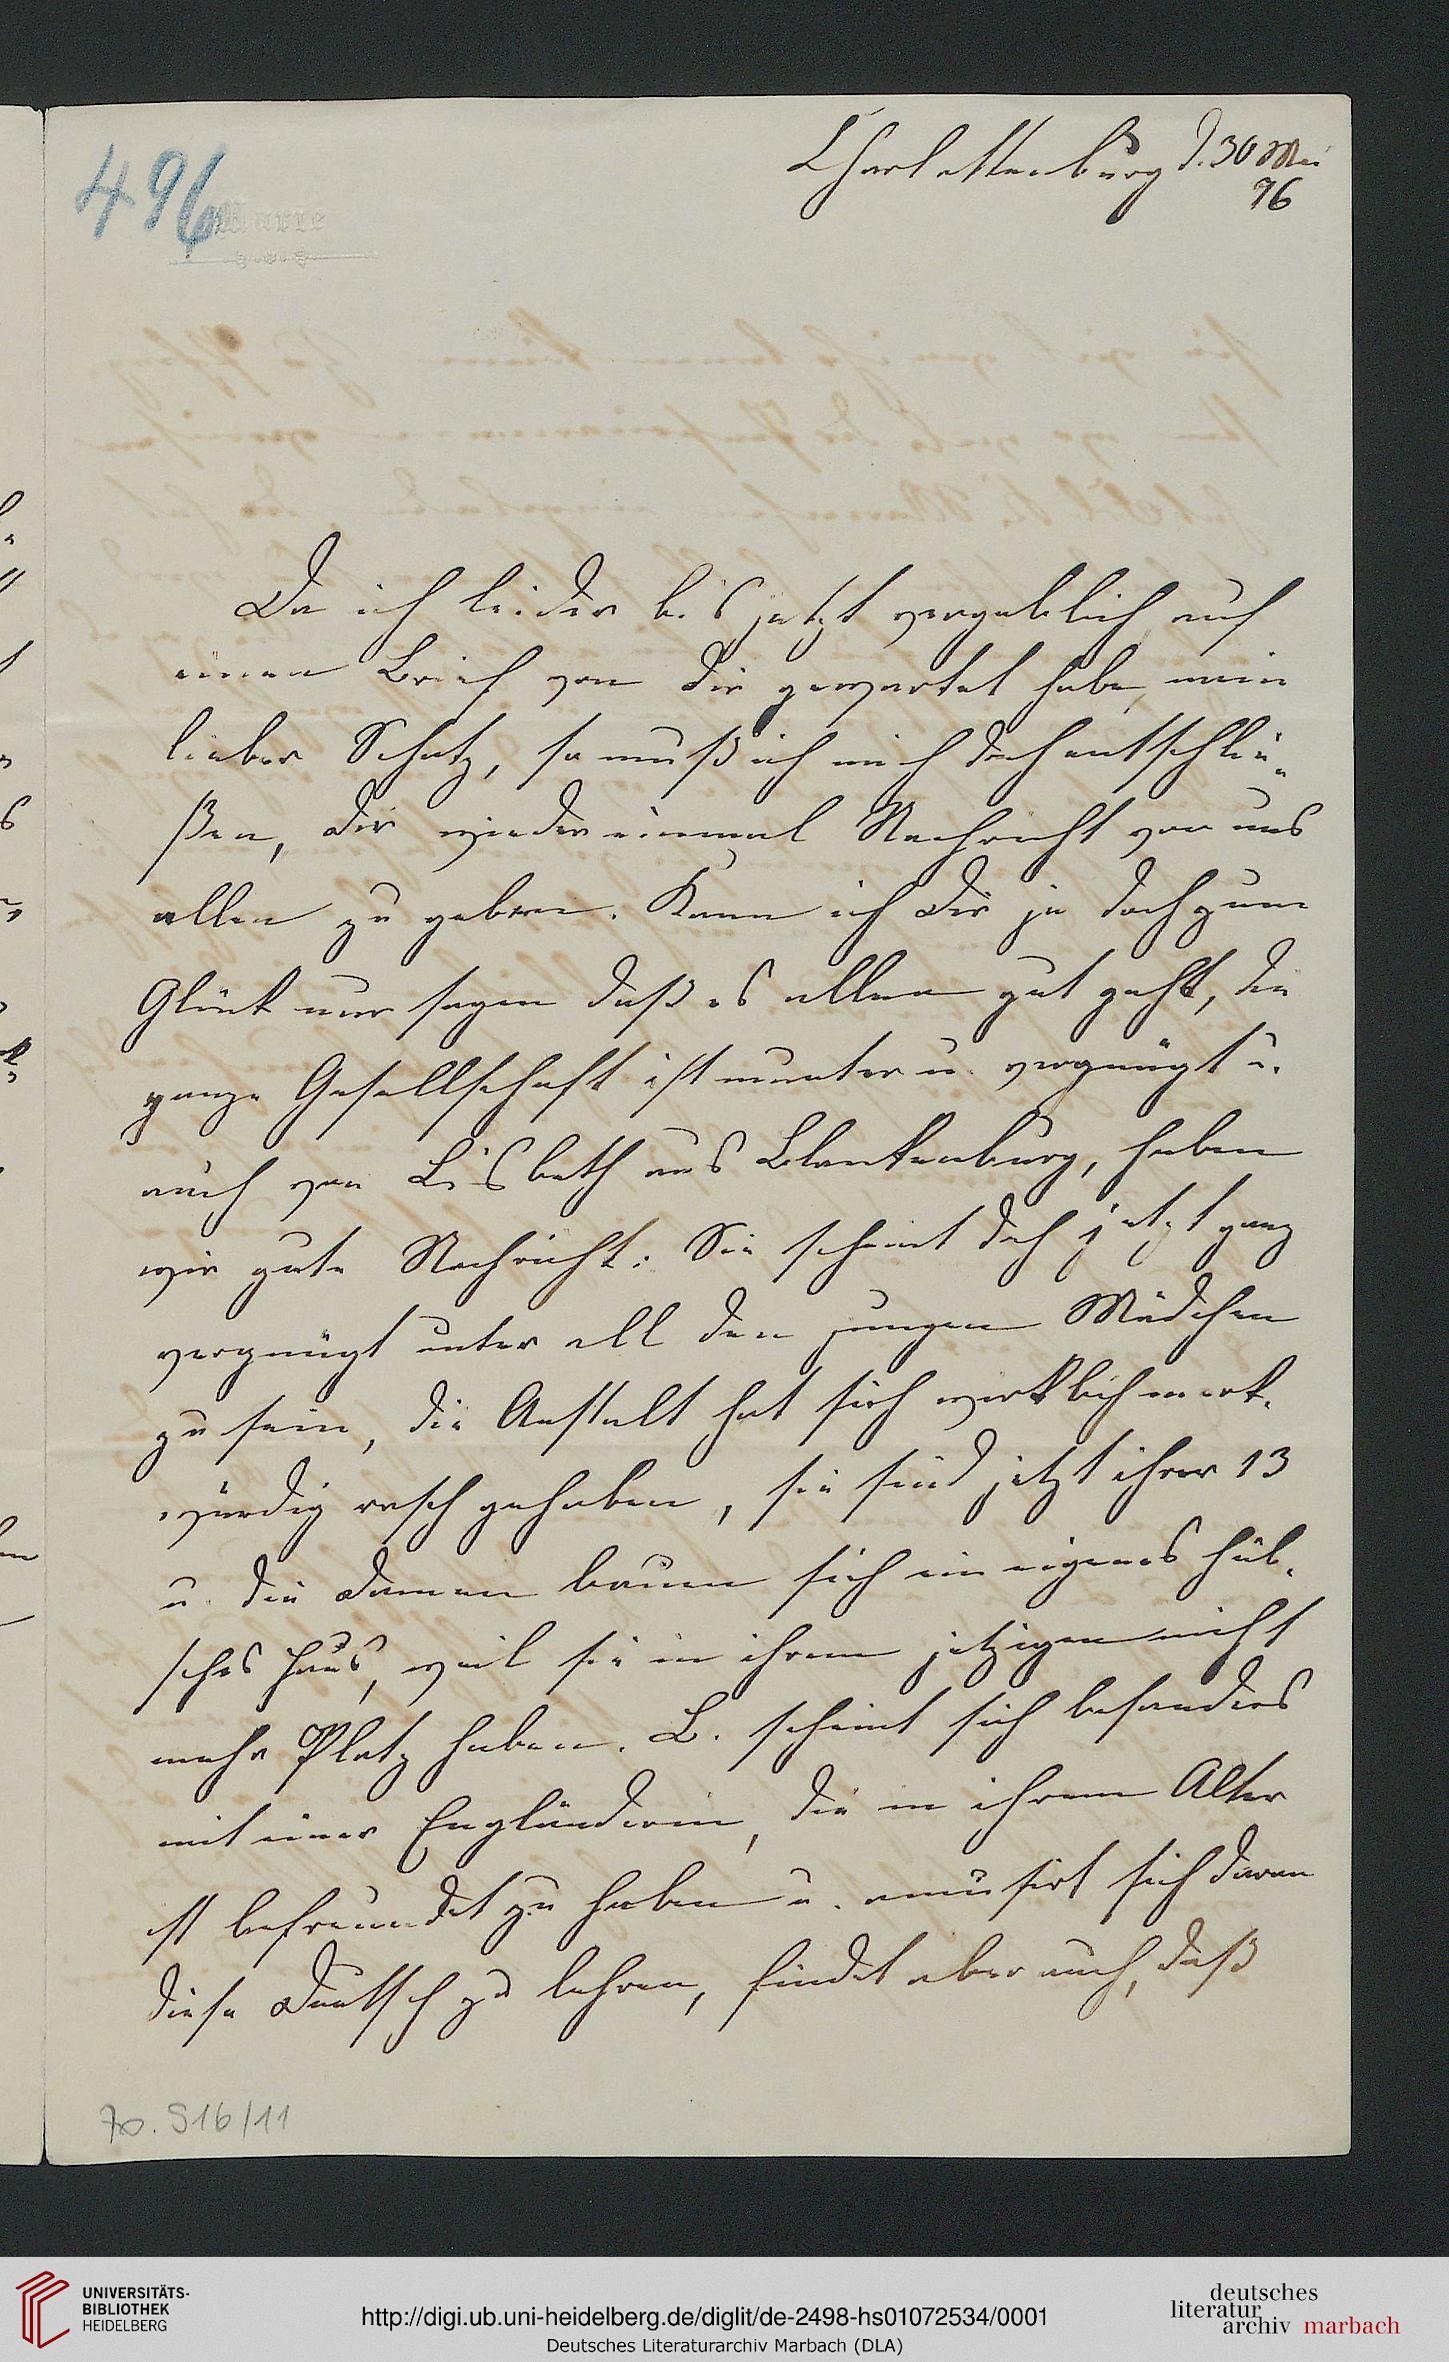 Charlottenburg d. 30 Mai
96
496
Marie
Da ich leider bis jetzt vergeblich auf
einen Brief von Dir gewartet habe, mein
lieber Schatz, so muß ich mich doch entschlie-
ßen, Dir wieder einmal Nachricht von uns
allen zu geben. Kann ich Dir ja doch zum
Glück nur sagen daß es allen gut geht, die
ganze Gesellschaft ist munter u. vergnügt u.
auch von Lisbeth aus Blankenburg, haben
wir gute Nachricht. Sie scheint doch jetzt ganz
vergnügt unter all den jungen Mädchen
zu sein, die Anstalt hat sich wirklich merk-
würdig rasch gehoben, sie sind jetzt ihrer 13
u. die Damen bauen sich ein eigenes hüb-
sches Haus, weil sie in ihrem jetzigen nicht
mehr Platz haben. L. scheint sich besonders
mit einer Engländerin, die in ihrem Alter
ist befreundet zu haben u. amüsirt sich daran
diese Deutsch zu lehren, findet aber auch, daß
70. 516/11
UNIVERSITÄTS-
BIBLIOTHEK
HEIDELBERG
http://digi.ub.uni-heidelberg.de/diglit/de-2498-hs01072534/0001
Deutsches Literaturarchiv Marbach (DLA)
deutsches
literatur
archiv marbach